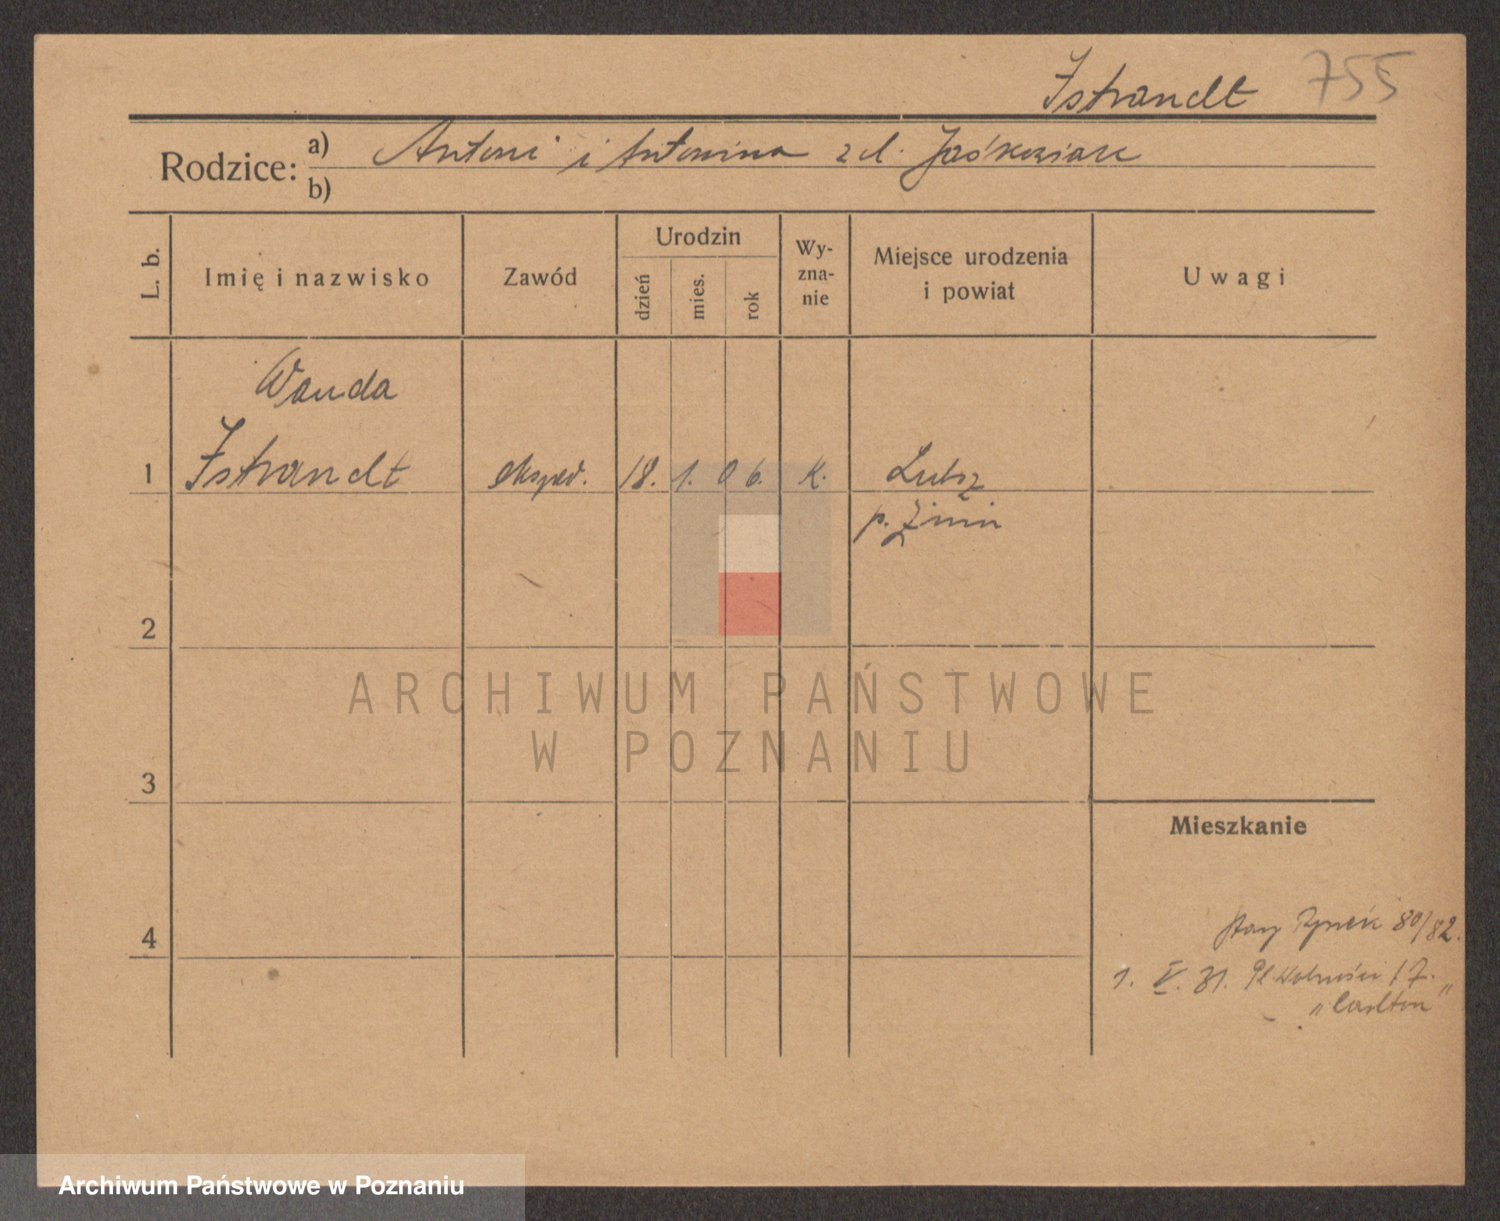 Istrandt 755
Rodzice: a) Antoni i Antonina z d. Jaśkowiak
b)
L. b.
Imię i nazwisko
Zawód
Urodzin
dzień
mies.
rok
Wy-
zna-
nie
Miejsce urodzenia
i powiat
Uwagi
Wanda
1 Istrandt eksped. 18. 1. 06. K. Lubcz
p. Żnin
2
3
4
ARCHIWUM PAŃSTWOWE
W POZNANIU
Mieszkanie
Stary Rynek 80/82.
1. V. 31. Pl Wolności 17.
„Carlton"
Archiwum Państwowe w Poznaniu